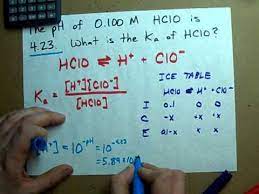 The pH of 0.100 M HClO is
4.23. What is the Ka of HClO?
HClO ⇌ H⁺ + ClO⁻
Ka = [H⁺][ClO⁻] / [HClO]
ICE TABLE
HClO ⇌ H⁺ + ClO⁻
I 0.1 0 0
C -x +x +x
E 0.1-x x x
[H⁺] = 10^-pH = 10^-4.23
= 5.89x10